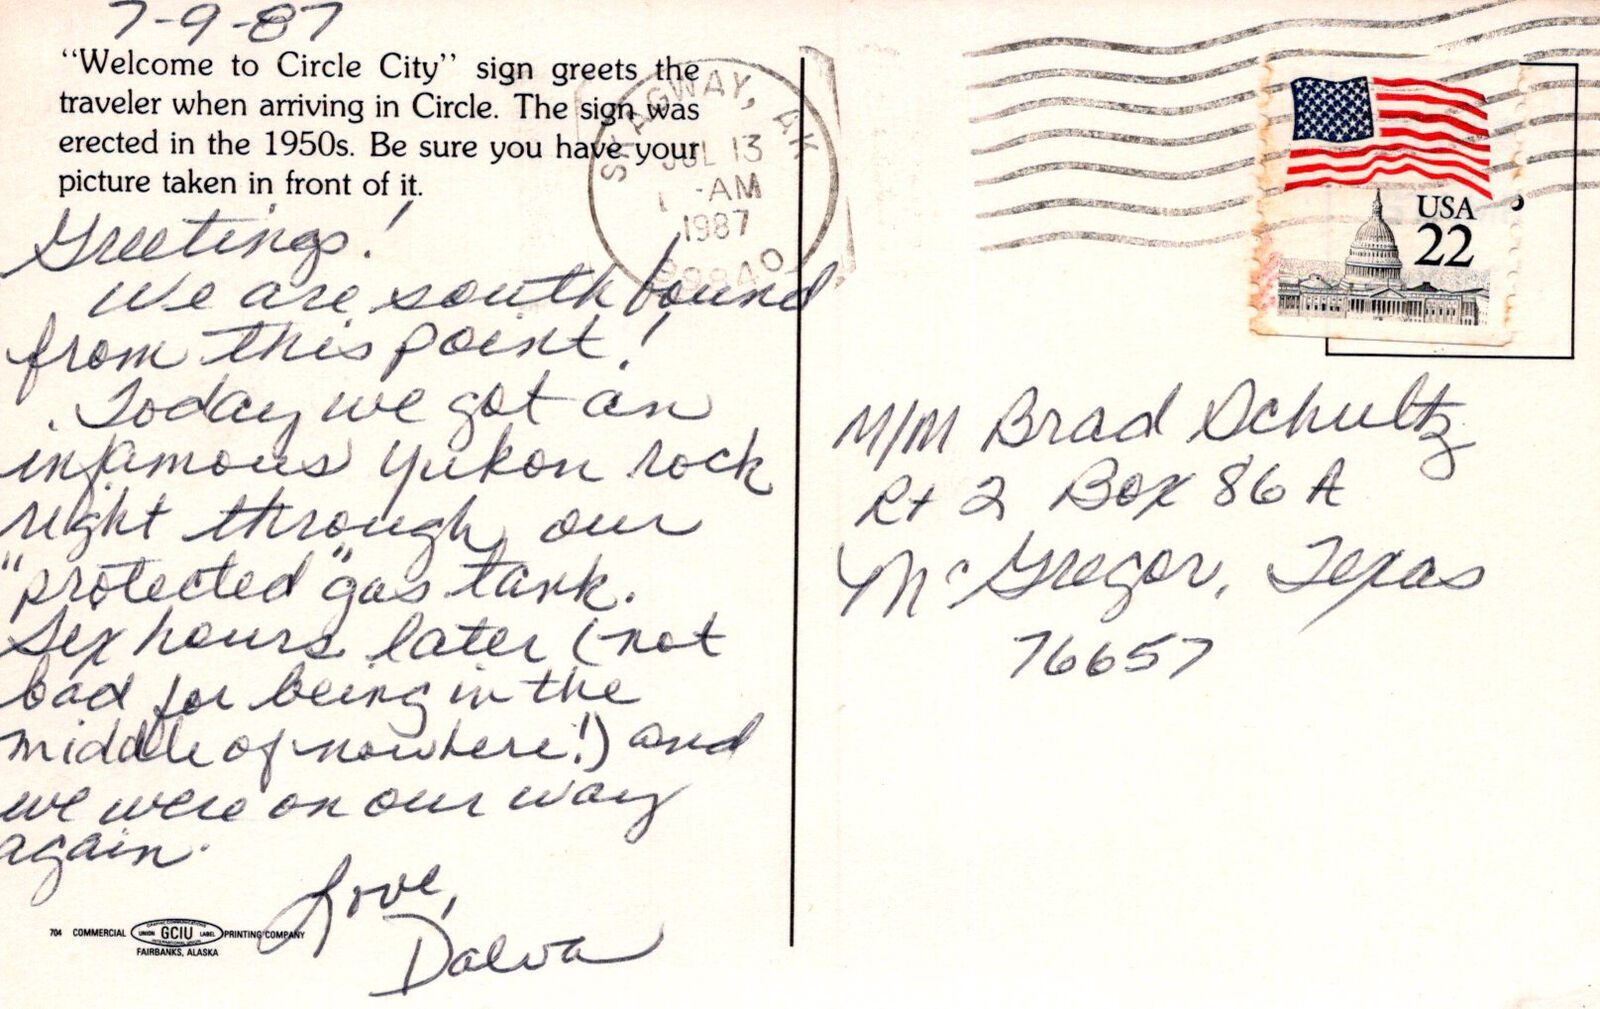 7-9-87
"Welcome to Circle City" sign greets the
traveler when arriving in Circle. The sign was
erected in the 1950s. Be sure you have your
picture taken in front of it.
Greetings!
We are southbound
from this point!
. Today we got an
infamous Yukon rock
right through our
"protected" gas tank.
Six hours later (not
bad for being in the
middle of nowhere!) and
we were on our way
again.
Love,
Dalva
704 COMMERCIAL UNION GCIU LABEL PRINTING COMPANY
FAIRBANKS, ALASKA
SKAGWAY, AK
JUL 13
AM
1987
99840
USA
22
M/M Brad Schultz
Rt 2 Box 86 A
McGregor, Texas
76657